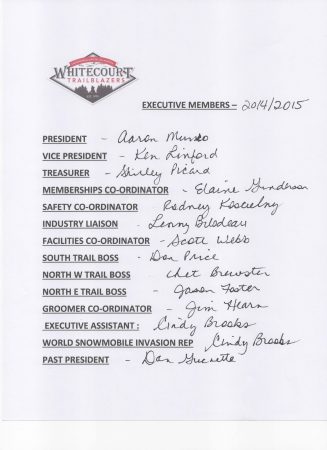 WHITECOURT
TRAILBLAZERS
EXECUTIVE MEMBERS – 2014/2015
PRESIDENT - Aaron
VICE PRESIDENT - Ken Linford
TREASURER - Shirley Picard
MEMBERSHIPS CO-ORDINATOR - Elaine Gunderson
SAFETY CO-ORDINATOR Rodney Koscielny
INDUSTRY LIAISON - Lenny Bilodeau
FACILITIES CO-ORDINATOR - Scott Webb
SOUTH TRAIL BOSS - Don Price
NORTH W TRAIL BOSS - Chet Brewster
NORTH E TRAIL BOSS - Jason Foster
GROOMER CO-ORDINATOR - Jim Hearn
EXECUTIVE ASSISTANT : Cindy Brooks
WORLD SNOWMOBILE INVASION REP Cindy Brooks
PAST PRESIDENT - Dan